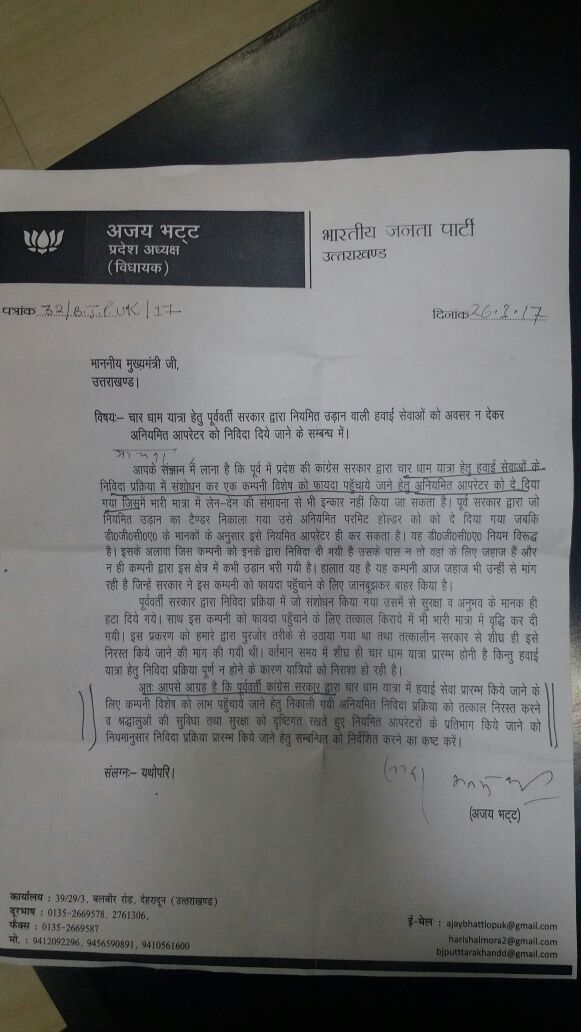 अजय भट्ट
प्रदेश अध्यक्ष
(विधायक)
भारतीय जनता पार्टी
उत्तराखण्ड
पत्रांक 33/B.J.P.UK/17
दिनांक 26.3.17
माननीय मुख्यमंत्री जी,
उत्तराखण्ड।
विषयः– चार धाम यात्रा हेतु पूर्ववर्ती सरकार द्वारा नियमित उड़ान वाली हवाई सेवाओं को अवसर न देकर
अनियमित आपरेटर को निविदा दिये जाने के सम्बन्ध में।
आपके संज्ञान में लाना है कि पूर्व में प्रदेश की कांग्रेस सरकार द्वारा चार धाम यात्रा हेतु हवाई सेवाओं के
निविदा प्रक्रिया में संशोधन कर एक कम्पनी विशेष को फायदा पहुँचाये जाने हेतु अनियमित आपरेटर को दे दिया
गया जिसमें भारी मात्रा में लेन–देन की संभावना से भी इन्कार नहीं किया जा सकता है। पूर्व सरकार द्वारा जो
नियमित उड़ान का टैण्डर निकाला गया उसे अनियमित परमिट होल्डर को को दे दिया गया जबकि
डी०जी०सी०ए० के मानकों के अनुसार इसे नियमित आपरेटर ही कर सकता है। यह डी०जी०सी०ए० नियम विरूद्ध
है। इसके अलावा जिस कम्पनी को इनके द्वारा निविदा दी गयी है उसके पास न तो वहां के लिए जहाज हैं और
न ही कम्पनी द्वारा इस क्षेत्र में कभी उड़ान भरी गयी है। हालात यह है यह कम्पनी आज जहाज भी उन्हीं से मांग
रही है जिन्हें सरकार ने इस कम्पनी को फायदा पहुंचाने के लिए जानबूझकर बाहर किया है।
पूर्ववर्ती सरकार द्वारा निविदा प्रक्रिया में जो संशोधन किया गया उसमें से सुरक्षा व अनुभव के मानक ही
हटा दिये गये। साथ इस कम्पनी को फायदा पहुँचाने के लिए तत्काल किराये में भी भारी मात्रा में वृद्धि कर दी
गयी। इस प्रकरण को हमारे द्वारा पुरजोर तरीके से उठाया गया था तथा तत्कालीन सरकार से शीघ्र ही इसे
निरस्त किये जाने की मांग की गयी थी। वर्तमान समय में शीघ्र ही चार धाम यात्रा प्रारम्भ होनी है किन्तु हवाई
यात्रा हेतु निविदा प्रक्रिया पूर्ण न होने के कारण यात्रियों को निराशा हो रही है।
अतः आपसे आग्रह है कि पूर्ववर्ती कांग्रेस सरकार द्वारा चार धाम यात्रा में हवाई सेवा प्रारम्भ किये जाने के
लिए कम्पनी विशेष को लाभ पहुंचाये जाने हेतु निकाली गयी अनियमित निविदा प्रक्रिया को तत्काल निरस्त करने
व श्रद्धालुओं की सुविधा तथा सुरक्षा को दृष्टिगत रखते हुए नियमित आपरेटरों के प्रतिभाग किये जाने को
नियमानुसार निविदा प्रक्रिया प्रारम्भ किये जाने हेतु सम्बन्धित को निर्देशित करने का कष्ट करें।
संलग्नः– यथोपरि।
(अजय भट्ट)
कार्यालय : 39/29/3, बलबीर रोड, देहरादून (उत्तराखण्ड)
दूरभाष : 0135-2669578, 2761306,
फैक्स : 0135-2669587
मो. : 9412092296, 9456590891, 9410561600
ई-मेल : ajaybhattlopuk@gmail.com
harishalmora2@gmail.com
bjputttarakhandd@gmail.com